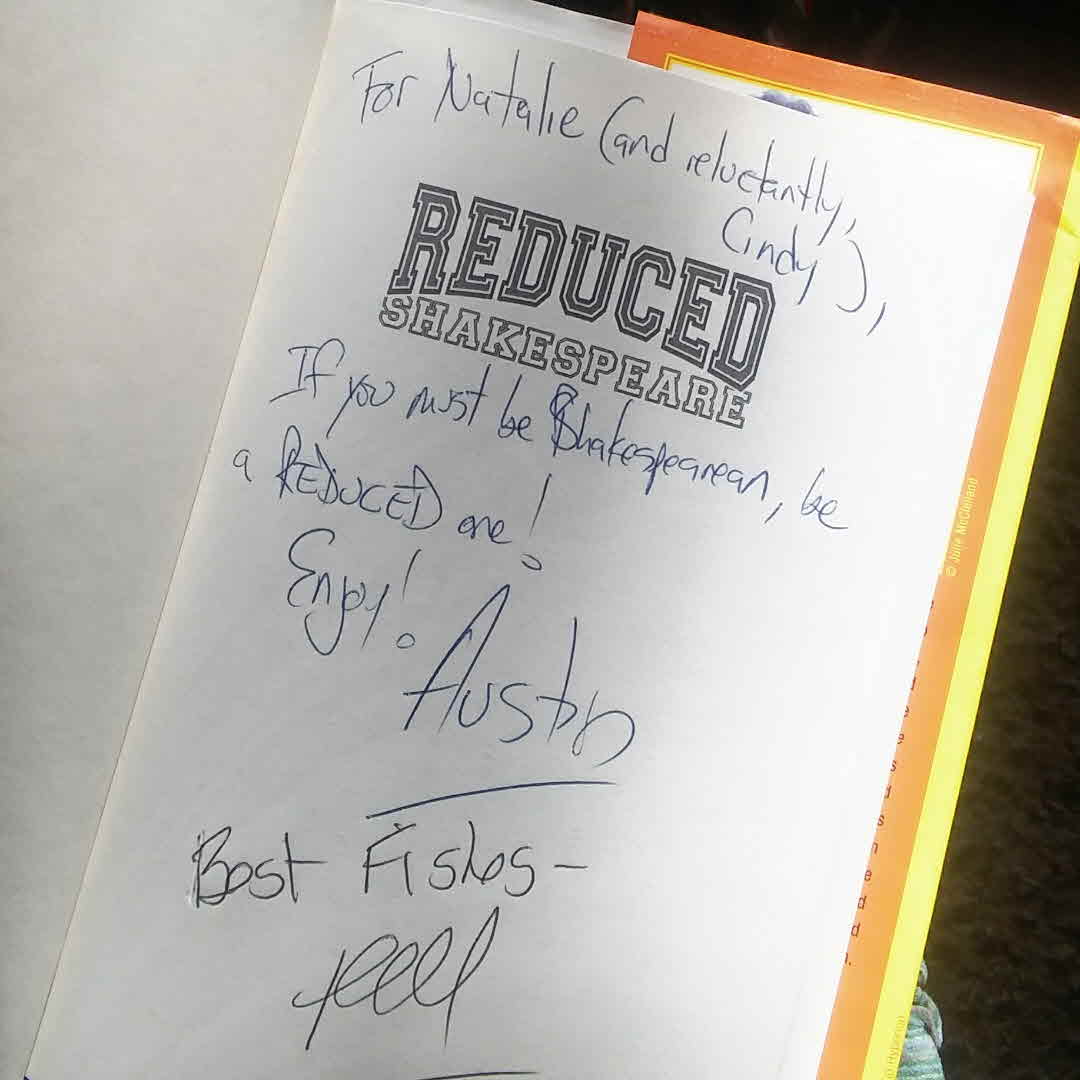 For Natalie (and reluctantly,
Cindy),
REDUCED
SHAKESPEARE
If you must be Shakespearean, be
a REDUCED one!
Enjoy!
Austin
Best Fishes-
© Julie McClelland